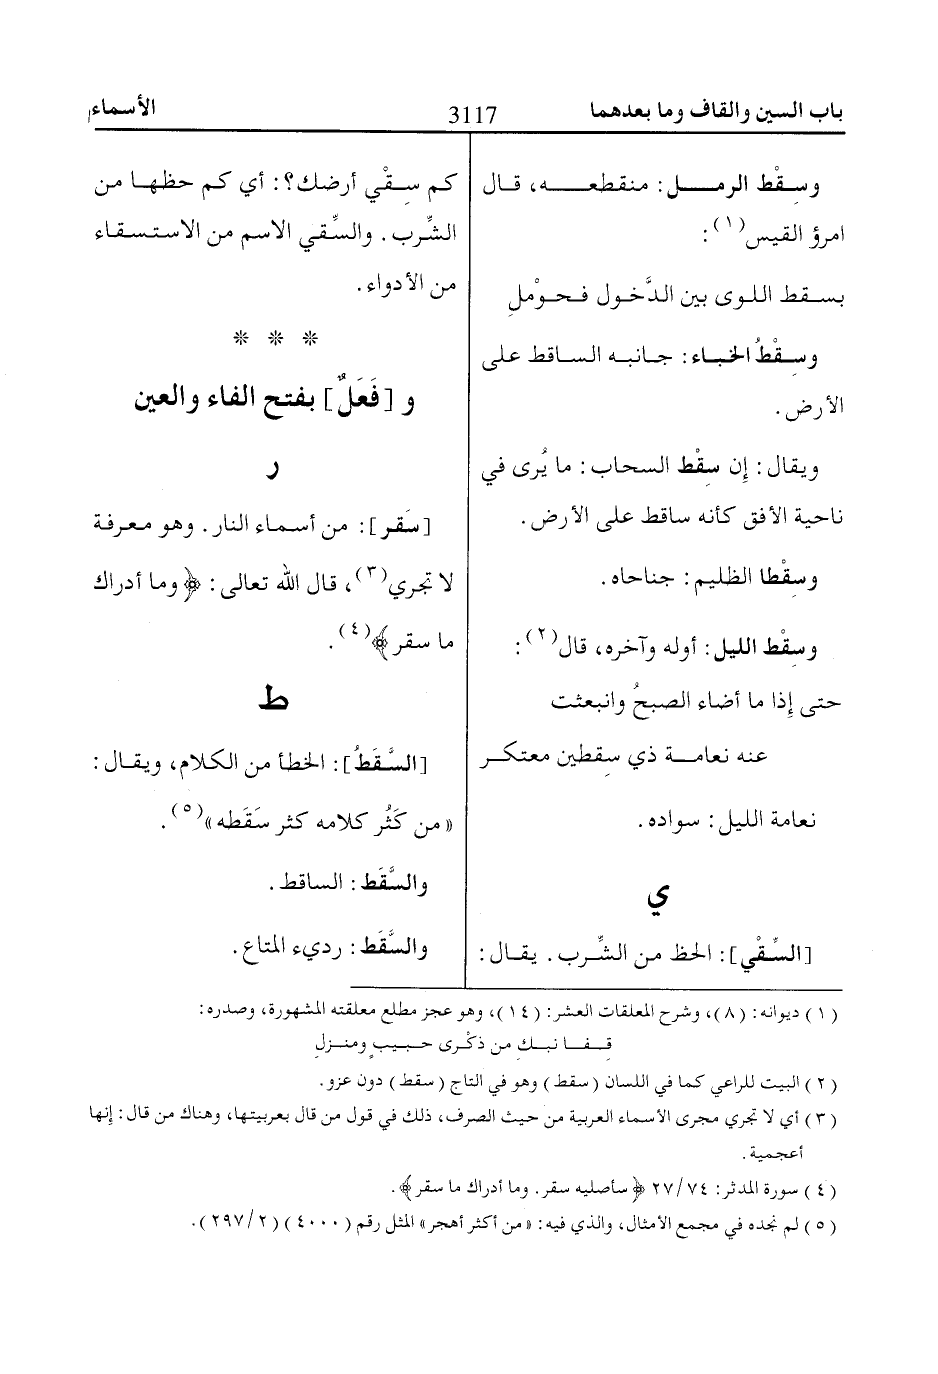 باب السين والقاف وما بعدهما
3117
الأسماء
وسِقْط الرمل: منقطعه، قال
امرؤ القيس(١):
بسقط اللوى بين الدَّخول فحوْملِ
وسِقْطُ الخباء: جانبه الساقط على
الأرض.
ويقال: إن سِقْط السحاب: ما يُرى في
ناحية الأفق كأنه ساقط على الأرض.
وسِقْطا الظليم: جناحاه.
وسِقْط الليل: أوله وآخره، قال(٢):
حتى إذا ما أضاء الصبحُ وانبعثت
عنه نعامة ذي سِقطين معتكر
نعامة الليل: سواده.
ي
[السِّقْي]: الحظ من الشِّرب. يقال:
كم سِقْي أرضك؟: أي كم حظها من
الشِّرب. والسِّقي الاسم من الاستسقاء
من الأدواء.
* * *
و [فَعَلٌ] بفتح الفاء والعين
ر
[سَقر]: من أسماء النار. وهو معرفة
لا تجري(٣)، قال الله تعالى: ﴿وما أدراك
ما سقر﴾(٤).
ط
[السَّقَطُ]: الخطأ من الكلام، ويقال:
«من كَثُر كلامه كثر سَقَطه»(٥).
والسَّقَط: الساقط.
والسَّقَط: رديء المتاع.
(١) ديوانه: (٨)، وشرح المعلقات العشر: (١٤)، وهو عجز مطلع معلقته المشهورة، وصدره:
قفا نبك من ذكْرى حبيبٍ ومنزلِ
(٢) البيت للراعي كما في اللسان (سقط) وهو في التاج (سقط) دون عزو.
(٣) أي لا تجري مجرى الأسماء العربية من حيث الصرف، ذلك في قول من قال بعربيتها، وهناك من قال: إنها
أعجمية.
(٤) سورة المدثر: ٢٧/٧٤ ﴿سأصليه سقر. وما أدراك ما سقر﴾.
(٥) لم نجده في مجمع الأمثال، والذي فيه: «من أكثر أهجر» المثل رقم (٤٠٠٠) (٢٩٧/٢).